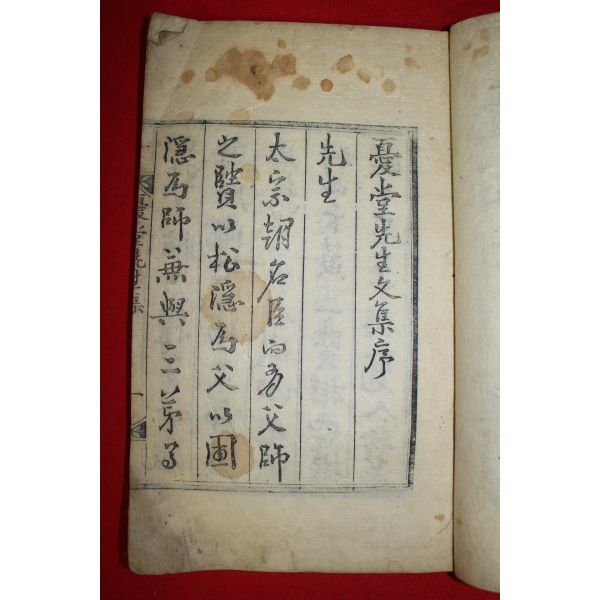 憂堂先生文集序
先生
太宗朝名臣而有父師
之賢以松隱爲父以圃
隱爲師兼與三弟
憂堂先生文集
一